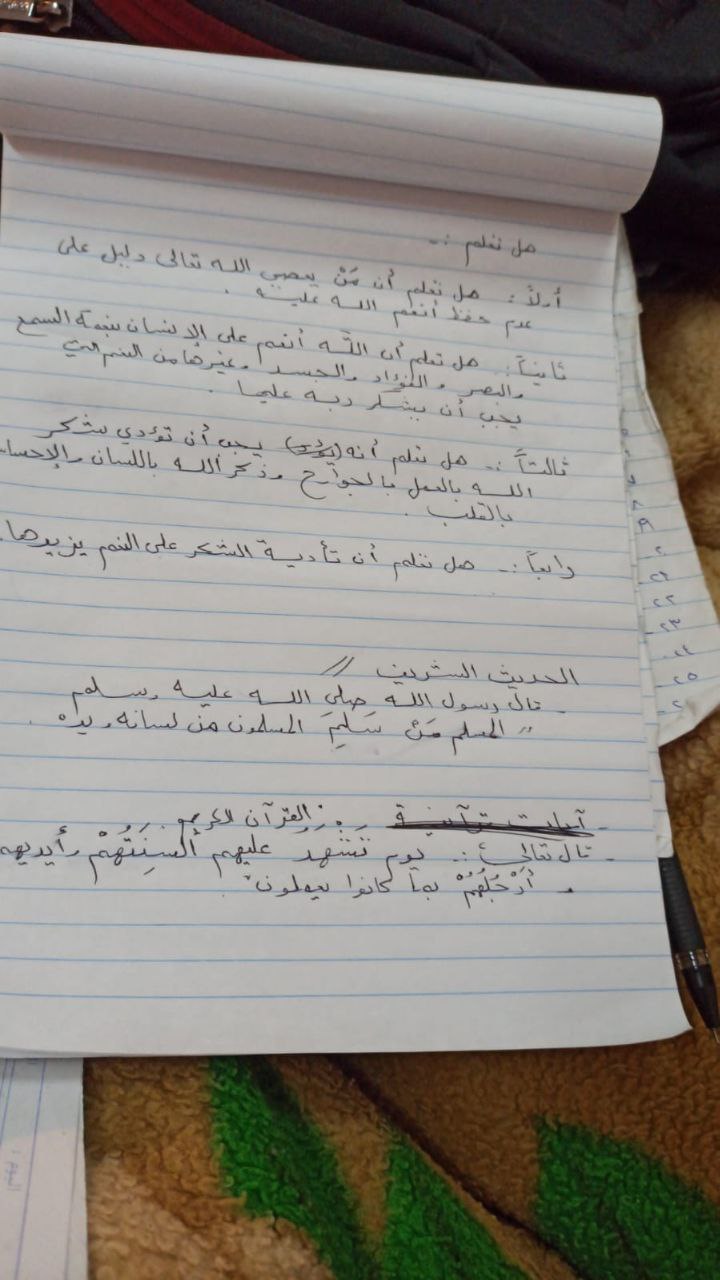 هل تعلم :-
أولاً : هل تعلم أن مَنْ يعصي الله تعالى دليل على
عدم حفظ أنعم الله عليه .
ثانياً : هل تعلم أن اللَّه أنعم على الإنسان بنعمة السمع
والبصر والفؤاد والجسد وغيرها من النعم التي
يجب أن يشكر ربه عليها .
ثالثاً :- هل تعلم أنه يجب أن تؤدي شكر
الله بالعمل بالجوارح وذكر الله باللسان والإحساس
بالقلب .
رابعاً :- هل تعلم أن تأدية الشكر على النعم يزيدها .
الحديث الشريف //
- قال رسول الله صلى الله عليه وسلم
" المسلم مَنْ سَلِمَ المسلمون من لسانه ويده .
- آيات قرآنية القرآن الكريم
- قال تعالى :- يوم تَشْهَدُ عليهم ألسِنَتُهُمْ وأيديهم
و أَرْجُلُهُمْ بما كانوا يعملون"
٢٢
٢٣
٢٤
٢٥